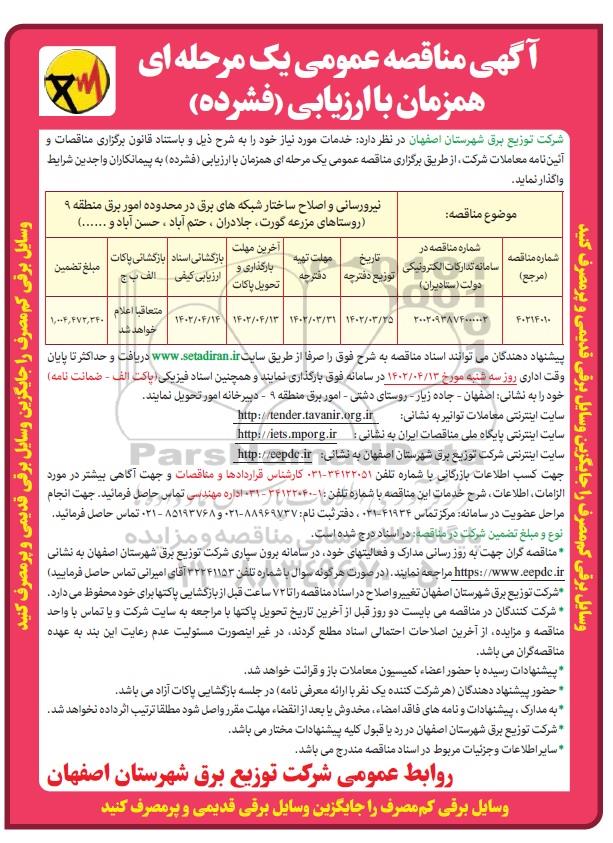 آگهی مناقصه عمومی یک مرحله ای
همزمان با ارزیابی (فشرده)
شرکت توزیع برق شهرستان اصفهان در نظر دارد: خدمات مورد نیاز خود را به شرح ذیل و باستناد قانون برگزاری مناقصات و
آئین نامه معاملات شرکت، از طریق برگزاری مناقصه عمومی یک مرحله ای همزمان با ارزیابی (فشرده) به پیمانکاران واجدین شرایط
واگذار نماید.
موضوع مناقصه:
نیرورسانی و اصلاح ساختار شبکه های برق در محدوده امور برق منطقه ۹
(روستاهای مزرعه گورت، جلادران، حتم آباد، حسن آباد و ......)
شماره مناقصه (مرجع)
شماره مناقصه در سامانه تدارکات الکترونیکی دولت (ستادیران)
تاریخ توزیع دفترچه
مهلت تهیه دفترچه
آخرین مهلت بارگذاری و تحویل پاکات
بازگشائی اسناد ارزیابی کیفی
بازگشائی پاکات الف ب ج
مبلغ تضمین
۴۰۲۱۴۰۱۰
۲۰۰۲۰۹۳۸۷۴۰۰۰۰۰۲
۱۴۰۲/۰۳/۲۵
۱۴۰۲/۰۳/۳۱
۱۴۰۲/۰۴/۱۳
۱۴۰۲/۰۴/۱۴
متعاقبا اعلام خواهد شد
۱,۰۰۴,۴۷۲,۳۴۰
پیشنهاد دهندگان می توانند اسناد مناقصه به شرح فوق را صرفا از طریق سایت www.setadiran.ir دریافت و حداکثر تا پایان
وقت اداری روز سه شنبه مورخ ۱۴۰۲/۰۴/۱۳ در سامانه فوق بارگذاری نمایند و همچنین اسناد فیزیکی (پاکت الف - ضمانت نامه)
خود را به نشانی: اصفهان - جاده زیار - روستای دشتی - امور برق منطقه ۹ - دبیرخانه امور تحویل نمایند.
سایت اینترنتی معاملات توانیر به نشانی: http://tender.tavanir.org.ir
سایت اینترنتی پایگاه ملی مناقصات ایران به نشانی: http://iets.mporg.ir
سایت اینترنتی شرکت توزیع برق شهرستان اصفهان به نشانی: http://eepdc.ir
جهت کسب اطلاعات بازرگانی با شماره تلفن ۳۴۱۲۲۰۵۱-۰۳۱ کارشناس قراردادها و مناقصات و جهت آگاهی بیشتر در مورد
الزامات، اطلاعات، شرح خدمات این مناقصه با شماره تلفن: ۱-۳۴۱۲۲۰۴۰-۰۳۱ اداره مهندسی تماس حاصل فرمائید. جهت انجام
مراحل عضویت در سامانه: مرکز تماس ۴۱۹۳۴-۰۲۱، دفتر ثبت نام: ۸۸۹۶۹۷۳۷-۰۲۱ و ۸۵۱۹۳۷۶۸-۰۲۱ تماس حاصل فرمائید.
نوع و مبلغ تضمین شرکت در مناقصه: در اسناد درج شده است.
*مناقصه گران جهت به روز رسانی مدارک و فعالیتهای خود، در سامانه برون سپاری شرکت توزیع برق شهرستان اصفهان به نشانی
https://www.eepdc.ir مراجعه نمایند. (در صورت هرگونه سوال با شماره تلفن ۳۲۲۴۱۱۵۳ آقای امیرانی تماس حاصل فرمایید)
*شرکت توزیع برق شهرستان اصفهان تغییر و اصلاح در اسناد مناقصه را تا ۷۲ ساعت قبل از بازگشایی پاکتها برای خود محفوظ می دارد.
*شرکت کنندگان در مناقصه می بایست دو روز قبل از آخرین تاریخ تحویل پاکتها با مراجعه به سایت شرکت و یا تماس با واحد
مناقصه و مزایده، از آخرین اصلاحات احتمالی اسناد مطلع گردند، در غیر اینصورت مسئولیت عدم رعایت این بند به عهده
مناقصه گران می باشد.
*پیشنهادات رسیده با حضور اعضاء کمیسیون معاملات باز و قرائت خواهد شد.
*حضور پیشنهاد دهندگان (هر شرکت کننده یک نفر با ارائه معرفی نامه) در جلسه بازگشایی پاکات آزاد می باشد.
*به مدارک، پیشنهادات و نامه های فاقد امضاء، مخدوش یا بعد از انقضاء مهلت مقرر واصل شود مطلقا ترتیب اثر داده نخواهد شد.
*شرکت توزیع برق شهرستان اصفهان در رد یا قبول کلیه پیشنهادات مختار می باشد.
*سایر اطلاعات و جزئیات مربوط در اسناد مناقصه مندرج می باشد.
روابط عمومی شرکت توزیع برق شهرستان اصفهان
وسایل برقی کم مصرف را جایگزین وسایل برقی قدیمی و پرمصرف کنید
وسایل برقی کم مصرف را جایگزین وسایل برقی قدیمی و پرمصرف کنید
وسایل برقی کم مصرف را جایگزین وسایل برقی قدیمی و پرمصرف کنید